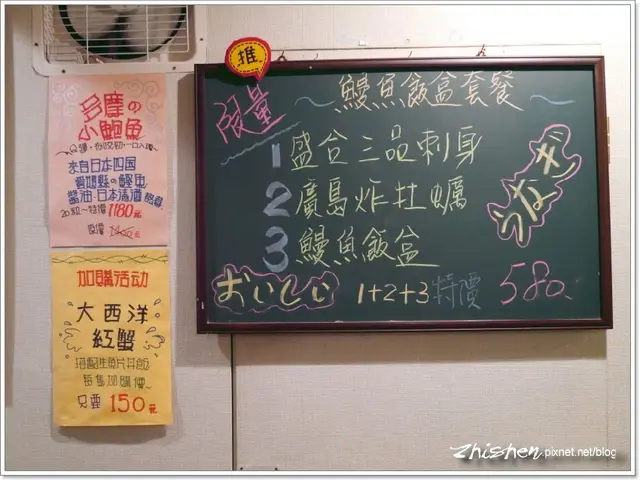 多摩の
小鮑魚
來自日本四国
愛媛縣の鰹魚
醬油・日本清酒
20粒～特價1180元
原價
加購活动
大西洋
紅蟹
搭配生魚片丼飯
每隻加購價~
只要 150元
推
限量
～鰻魚飯盒套餐～
1 盛合三品刺身
2 廣島炸牡蠣
3 鰻魚飯盒
うなぎ
おいしい 1+2+3 特價 580.
zhishen.pixnet.net/blog